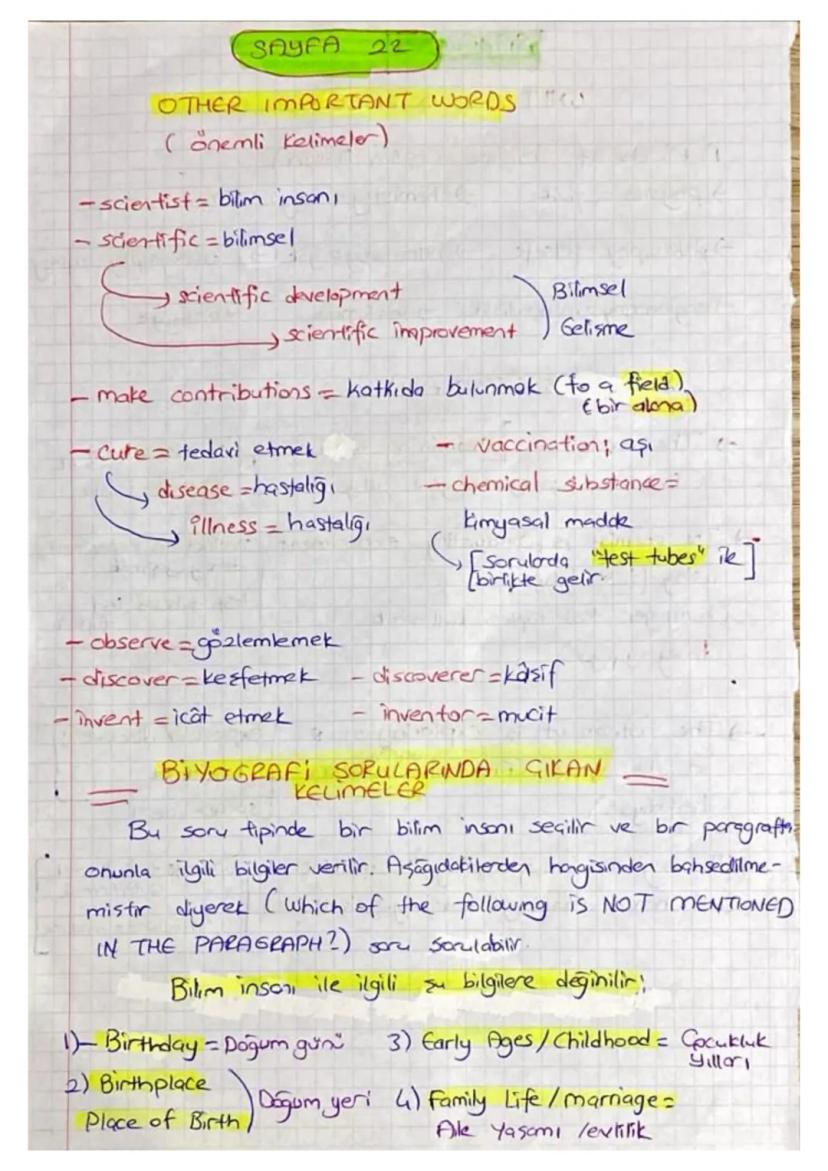 SAYFA 22
OTHER IMPORTANT WORDS
(önemli kelimeler)
- scientist = bilim insanı
- scientific = bilimsel
scientific development
scientific improvement
Bilimsel
Gelişme
- make contributions = katkıda bulunmak (to a field)
(bir alana)
- cure = tedavi etmek
disease = hastalığı
illness = hastalığı
- vaccination; aşı
- chemical substance =
kimyasal madde
[sorularda "test tubes" ile]
[birlikte gelir.
- observe = gözlemlemek
- discover = keşfetmek - discoverer = kâşif
- invent = icât etmek - inventor = mucit
BİYOGRAFİ SORULARINDA ÇIKAN
KELİMELER
Bu soru tipinde bir bilim insanı seçilir ve bir paragrafta
onunla ilgili bilgiler verilir. Aşağıdakilerden hangisinden bahsedilme-
miştir diyerek (which of the following is NOT MENTIONED
IN THE PARAGRAPH?) soru sorulabilir.
Bilim insanı ile ilgili şu bilgilere değinilir;
1)- Birthday = Doğum günü
2) Birthplace
Place of Birth
Doğum yeri
3) Early Ages/Childhood = Çocukluk
Yılları
4) Family Life / marriage =
Aile Yaşamı / evlilik